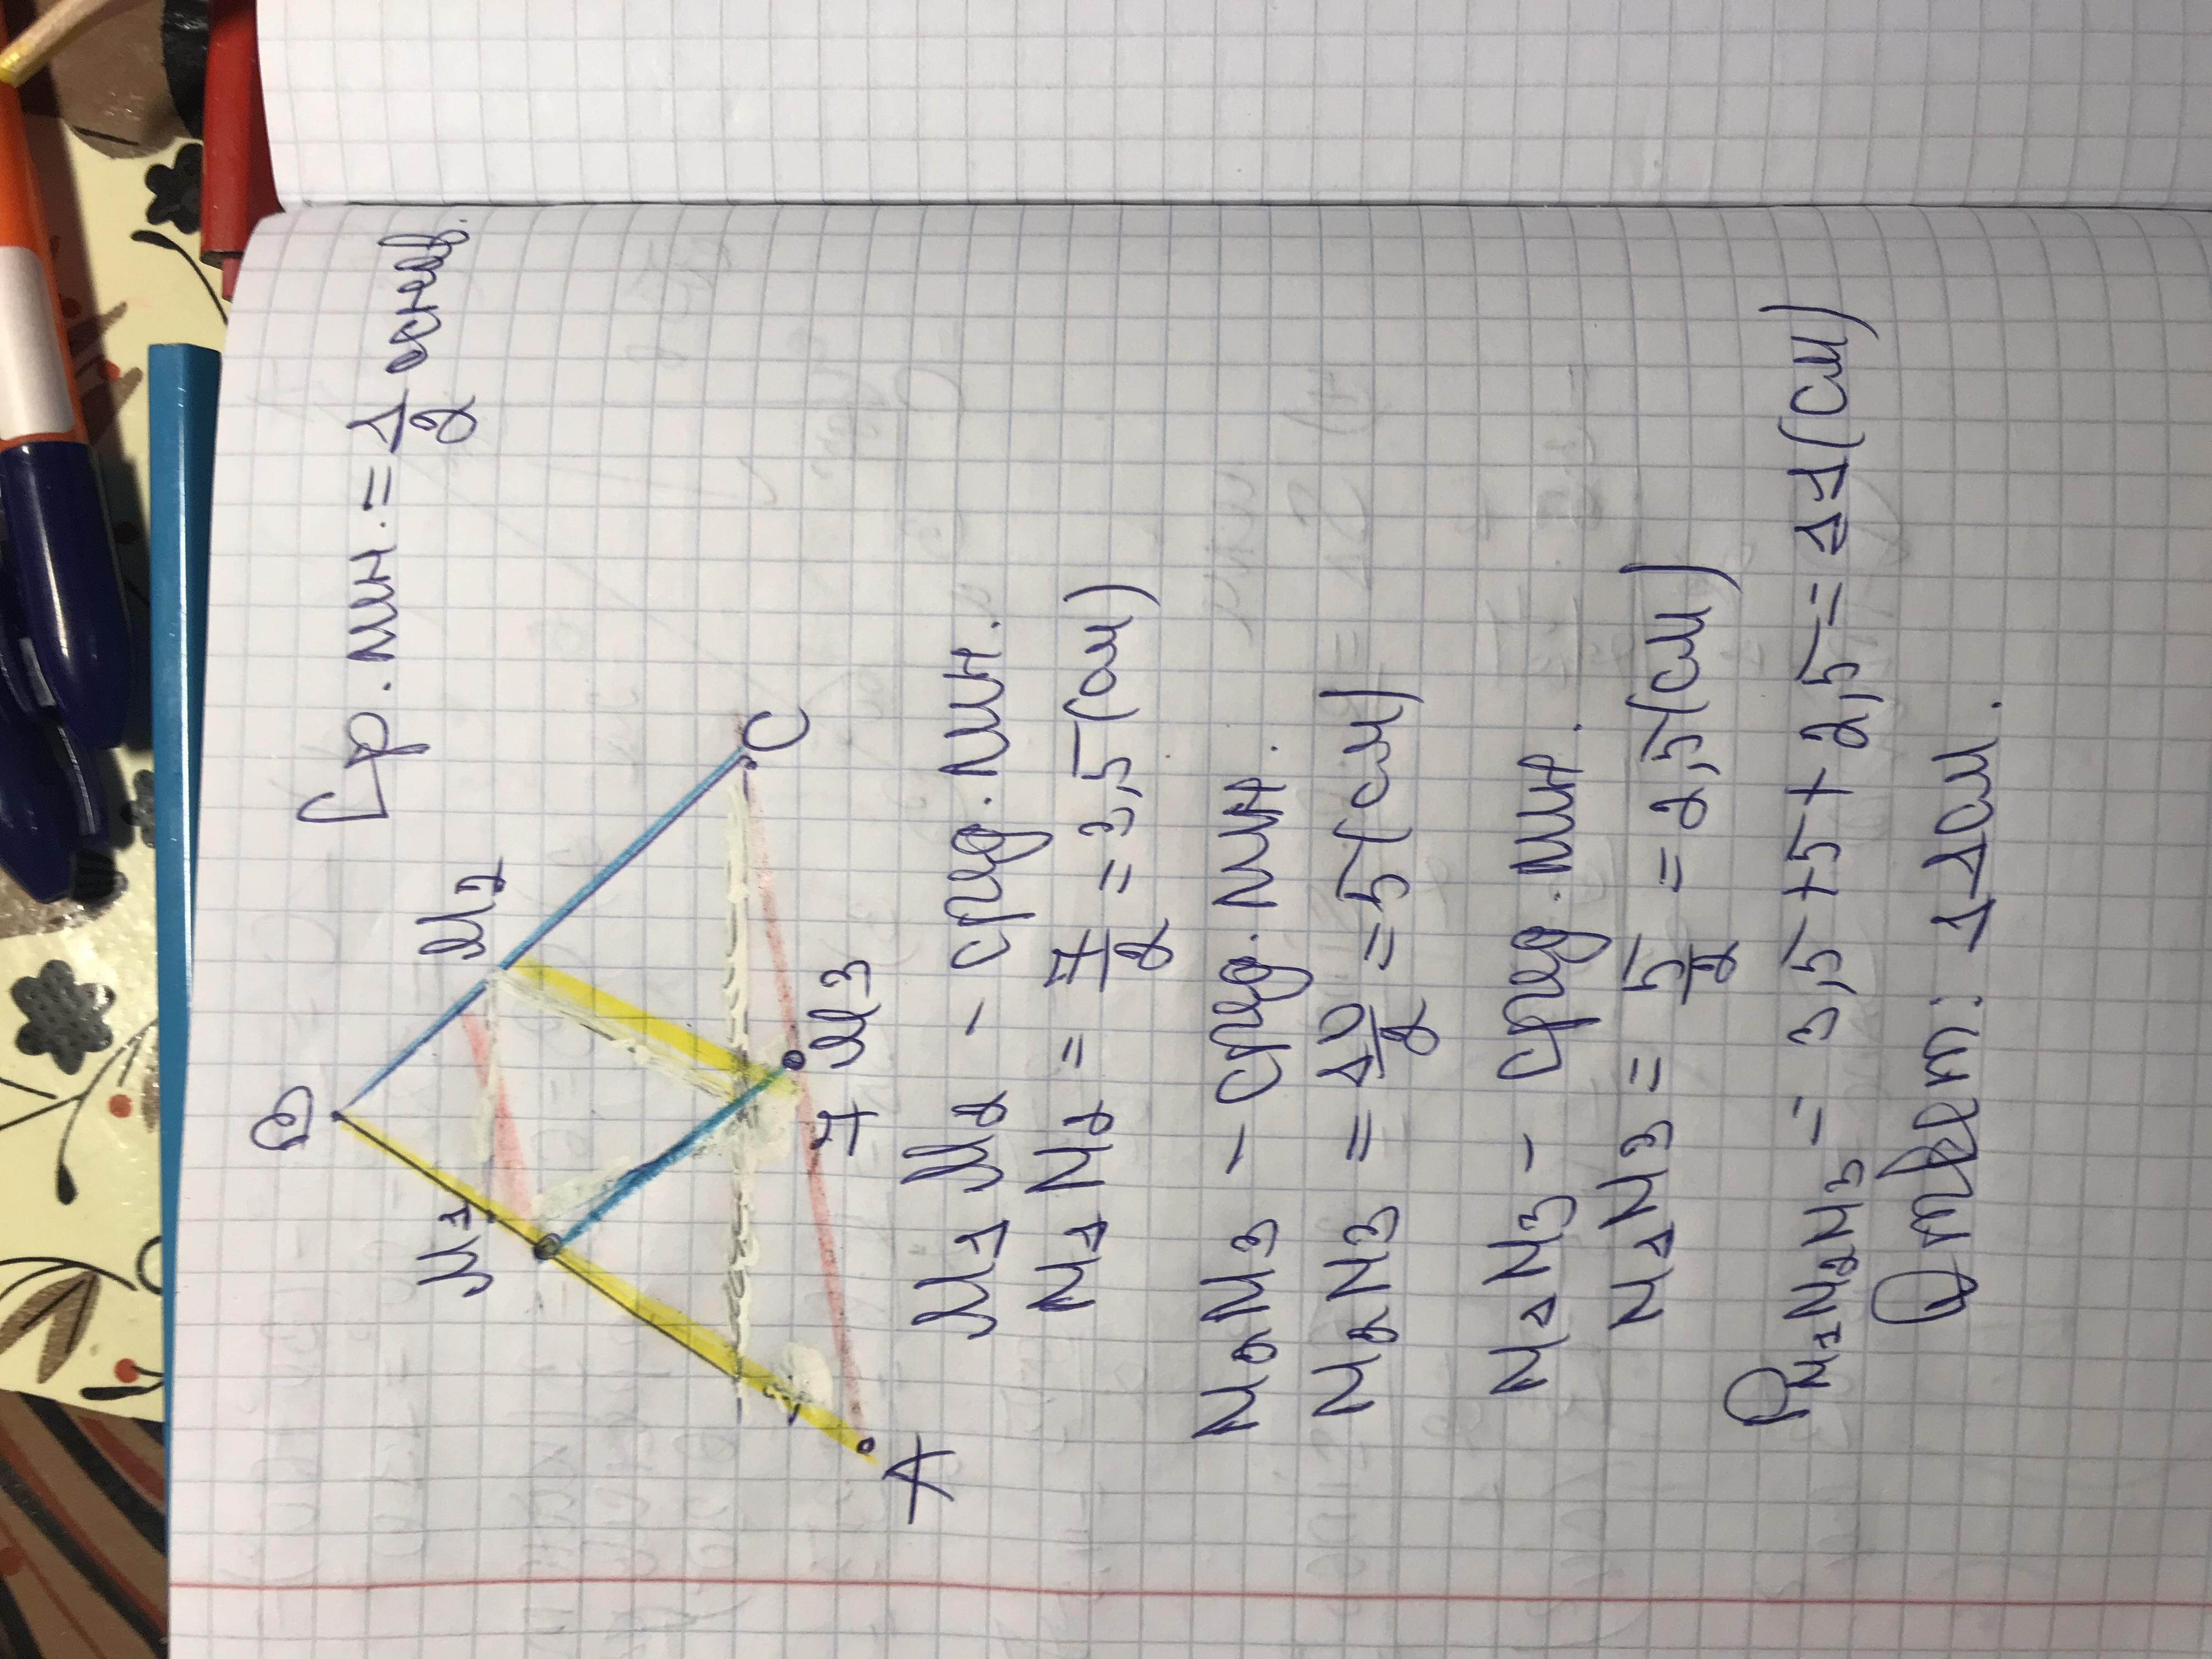 Ср. лин. = 1/2 основ.
B
M1
M2
A
7
M3
C
M1 M2 - сред. лин.
M1 M2 = 7/2 = 3,5 (см)
M2M3 - сред. лин.
M2M3 = 10/2 = 5 (см)
M1M3 - сред. лин.
M1M3 = 5/2 = 2,5 (см)
PM1M2M3 = 3,5 + 5 + 2,5 = 11 (см)
Ответ: 11см.